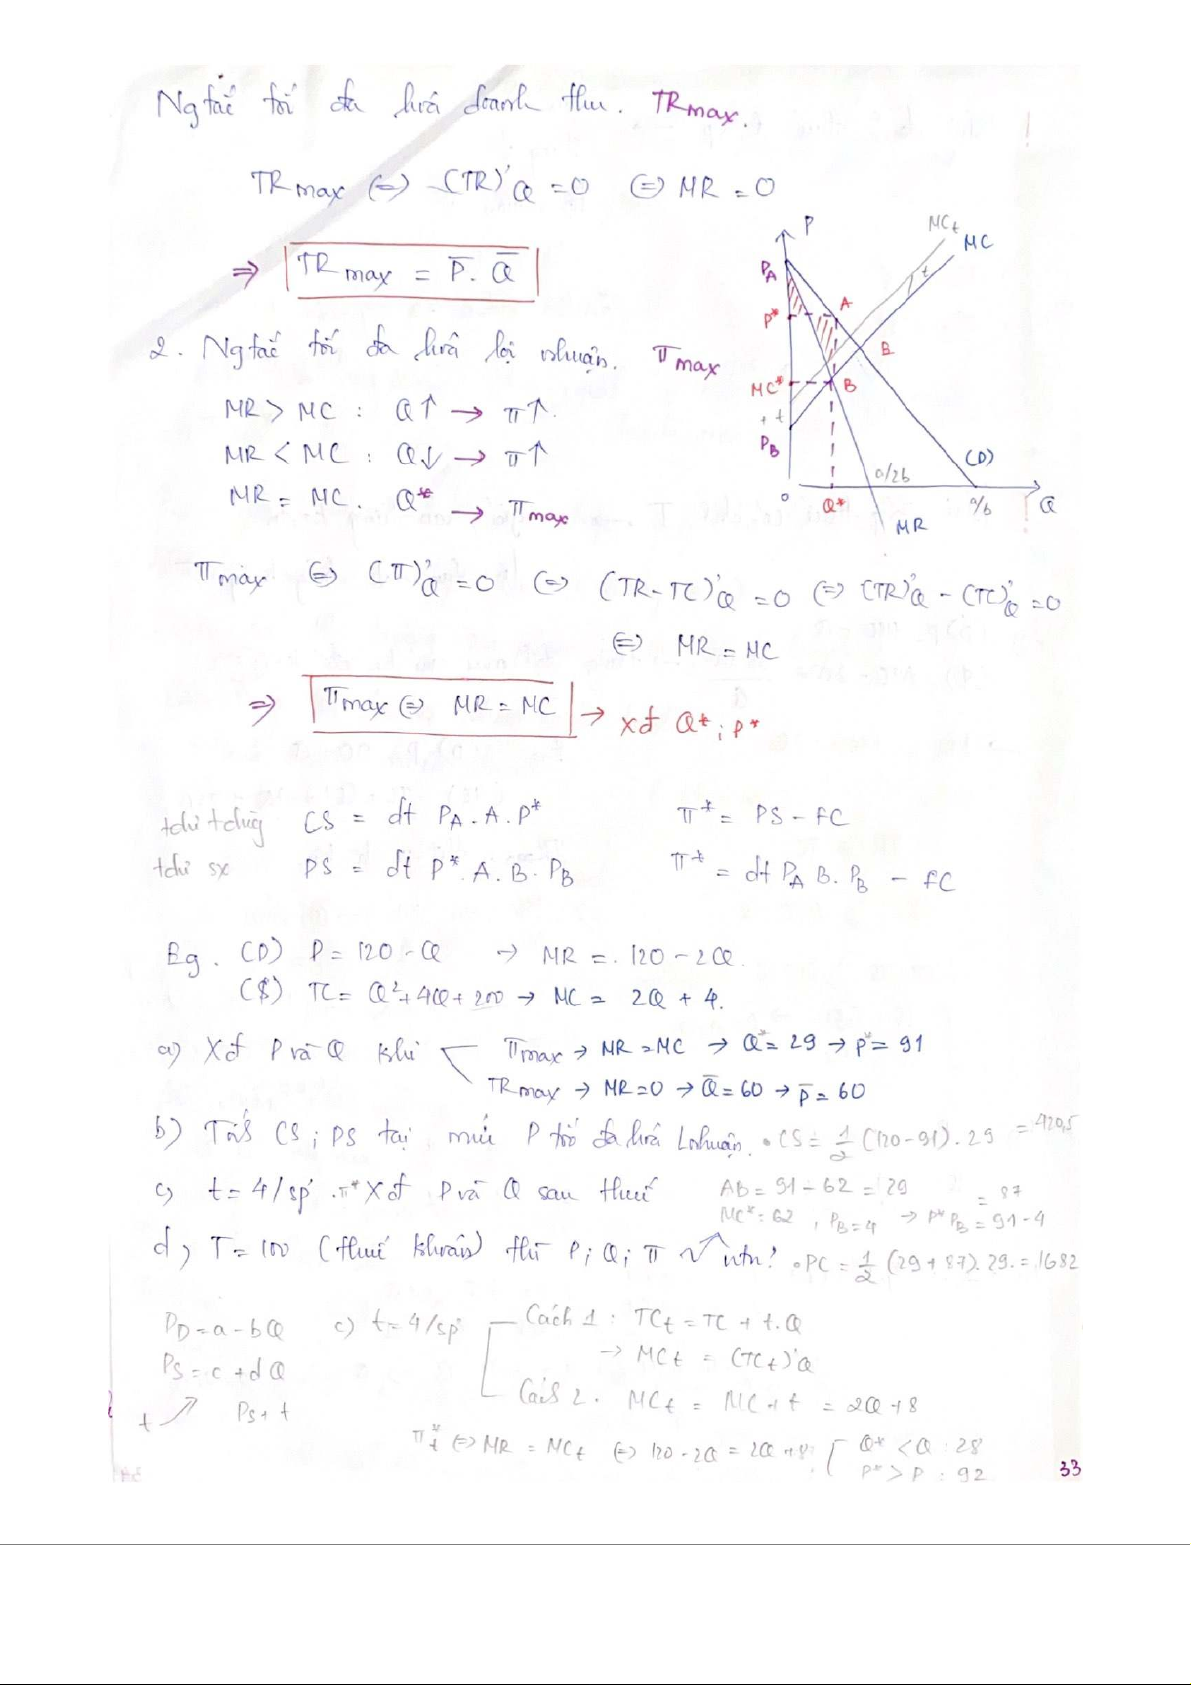 Ng tắc tối đa hoá doanh thu. TRmax.
TRmax ⇔ (TR)'Q = 0 ⇔ MR = 0
⇒ TRmax = P̄. Q̄
P
MCt
MC
t
PA
A
P*
B
MC*
B
+ t
PB
(D)
a/2b
0
Q*
a/b
Q
MR
2. Ng tắc tối đa hoá lợi nhuận. πmax
MR > MC : Q↑ → π↑.
MR < MC : Q↓ → π↑
MR = MC. Q* → πmax
πmax ⇔ (π)'Q = 0 ⇔ (TR - TC)'Q = 0 ⇔ (TR)'Q - (TC)'Q = 0
⇔ MR = MC
⇒ πmax ⇔ MR = MC → xđ Q*; P*
CS = dt PA. A. P* π* = PS - FC
PS = dt P*. A. B. PB π* = dt PA B. PB - FC
Eg. (D) P = 120 - Q → MR = 120 - 2Q.
(S) TC = Q² + 4Q + 200 → MC = 2Q + 4.
a) Xđ P và Q khi πmax → MR = MC → Q* = 29 → P* = 91
TRmax → MR = 0 → Q̄ = 60 → P̄ = 60
b) Tính CS; PS tại mức P tối đa hoá Lnhuận. • CS = 1/2 (120 - 91). 29 = 420,5
c) t = 4/sp. π* Xđ P và Q sau thuế AB = 91 - 62 = 29
MC* = 62, PB = 4 → P*PB = 91 - 4 = 87
d) T = 100 (thuế khoán) thì P; Q; π ntn? • PC = 1/2 (29 + 87). 29. = 1682
PD = a - bQ c) t = 4/sp Cách 1 : TCt = TC + t.Q
→ MCt = (TCt)'Q
PS = c + dQ
Cách 2. MCt = MC + t = 2Q + 8
t PS + t
π*t ⇔ MR = MCt ⇔ 120 - 2Q = 2Q + 8. Q* < Q : 28
P* > P : 92
33